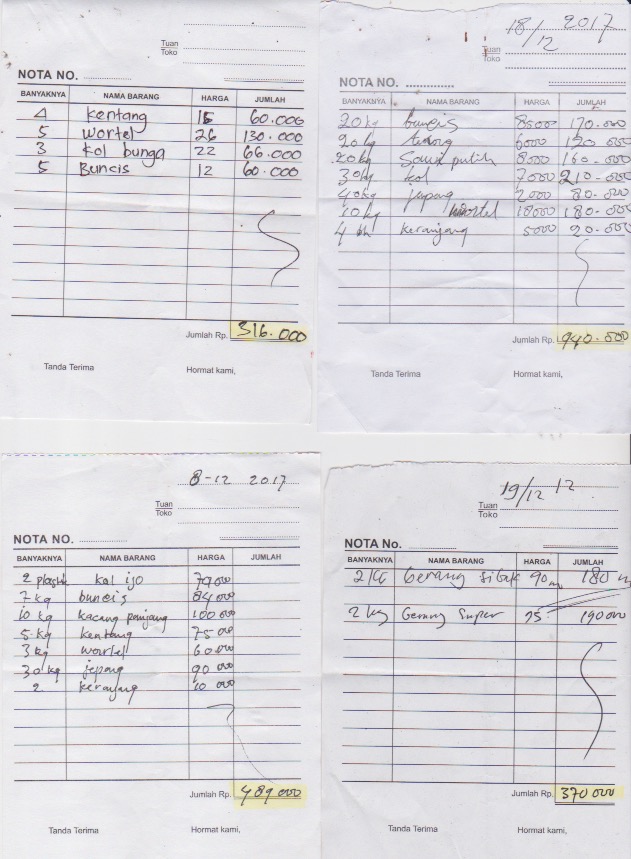 Tuan
Toko
NOTA NO.
BANYAKNYA NAMA BARANG HARGA JUMLAH
4 Kentang 15 60.000
5 Wortel 26 130.000
3 Kol bunga 22 66.000
5 Buncis 12 60.000
Jumlah Rp. 316.000
Tanda Terima Hormat kami,
18/12 2017
Tuan
Toko
NOTA NO.
BANYAKNYA NAMA BARANG HARGA JUMLAH
20 kg buncis 8500 170.000
20 kg 6000 120 000
20 kg Sawi putih 8000 160.000
30 kg kol 7000 210.000
40 kg jepang 2000 80.000
10 kg wortel 18000 180.000
4 bh keranjang 5000 20.000
Jumlah Rp. 940.000
Tanda Terima Hormat kami,
8-12 2017
Tuan
Toko
NOTA NO.
BANYAKNYA NAMA BARANG HARGA JUMLAH
2 plastik kol ijo 70 000
7 kg buncis 84 000
10 kg kacang panjang 100 000
5 kg kentang 75 000
3 kg wortel 60 000
30 kg jepang 90 000
2 keranjang 10 000
Jumlah Rp. 489 000
Tanda Terima Hormat kami,
19/12 12
Tuan
Toko
NOTA No.
BANYAKNYA NAMA BARANG HARGA JUMLAH
2 KG 90 180
2 kg Super 95 190 000
Jumlah Rp. 370 000
Tanda Terima Hormat kami,